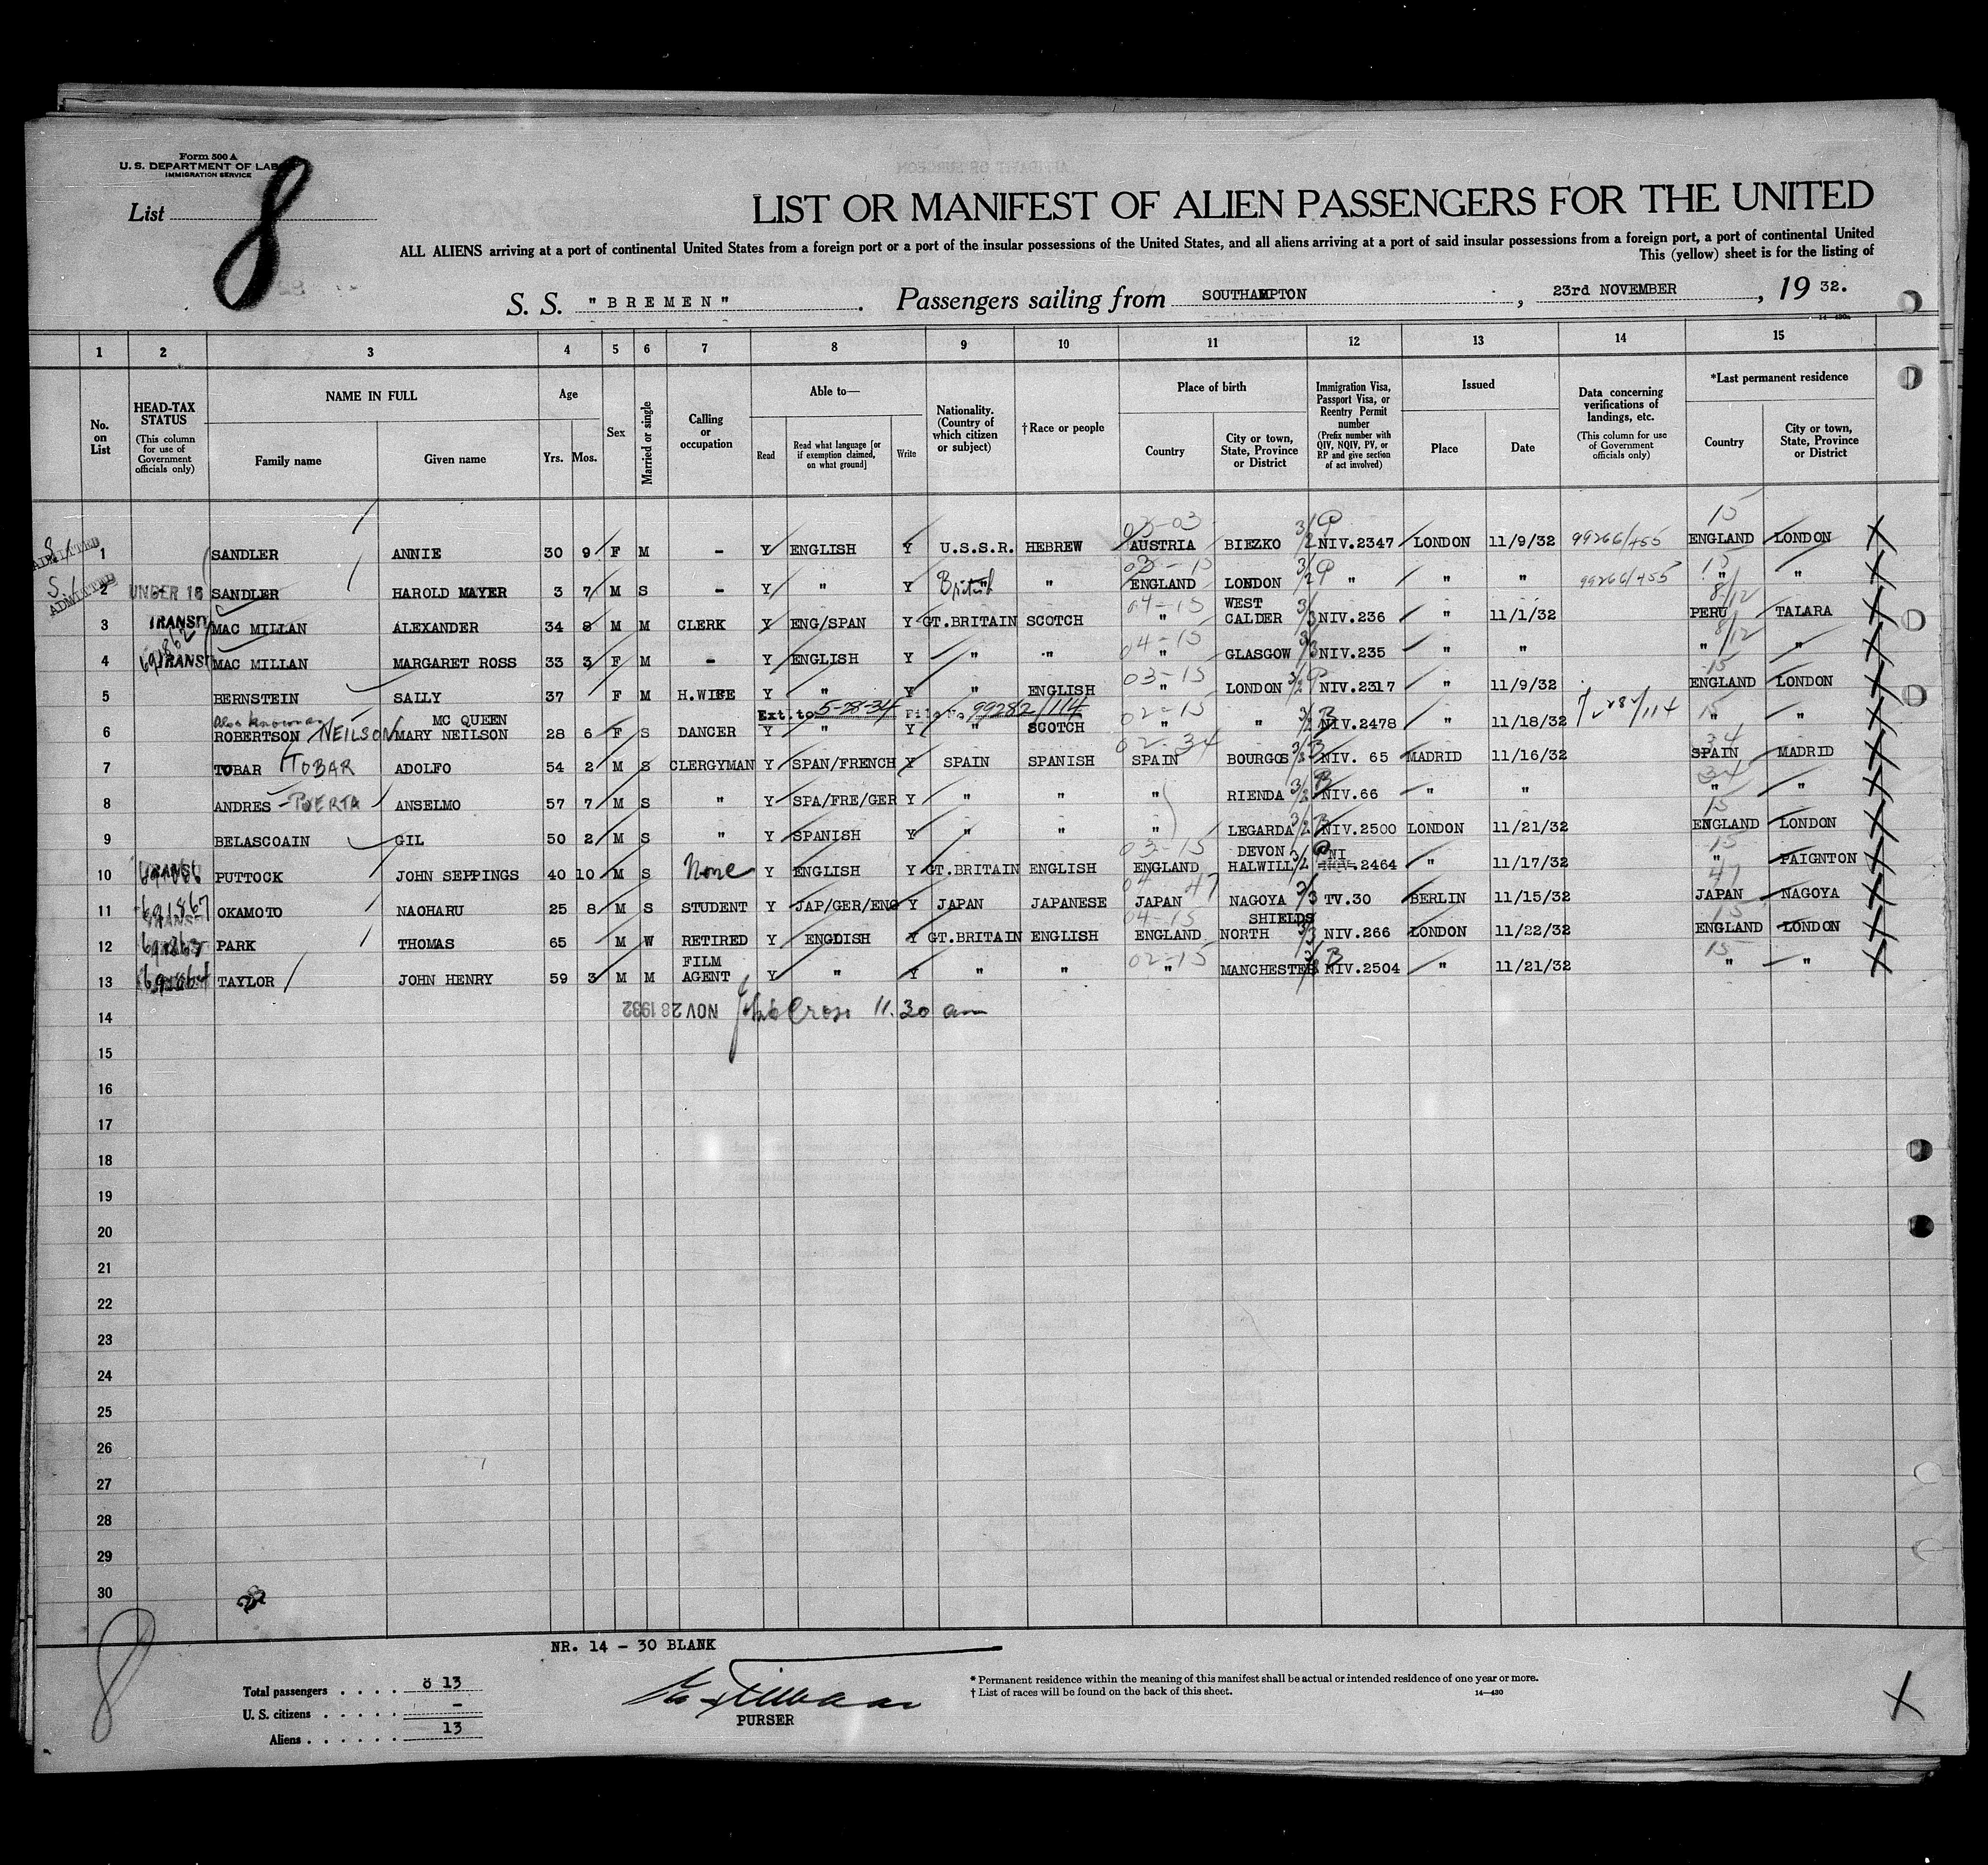 Form 500 A
U. S. DEPARTMENT OF LAB
IMMIGRATION SERVICE
List 8
LIST OR MANIFEST OF ALIEN PASSENGERS FOR THE UNITED
ALL ALIENS arriving at a port of continental United States from a foreign port or a port of the insular possessions of the United States, and all aliens arriving at a port of said insular possessions from a foreign port, a port of continental United
This (yellow) sheet is for the listing of
S. S. "BREMEN". Passengers sailing from SOUTHAMPTON, 23rd NOVEMBER, 19 32.
1 2 3 4 5 6 7 8 9 10 11 12 13 14 15
No. on List
HEAD-TAX STATUS (This column for use of Government officials only)
NAME IN FULL Family name Given name
Age Yrs. Mos.
Sex
Married or single
Calling or occupation
Able to— Read Read what language [or if exemption claimed, on what ground] Write
Nationality. (Country of which citizen or subject)
†Race or people
Place of birth Country City or town, State, Province or District
Immigration Visa, Passport Visa, or Reentry Permit number (Prefix number with QIV, NQIV, PV, or RP and give section of act involved)
Issued Place Date
Data concerning verifications of landings, etc. (This column for use of Government officials only)
*Last permanent residence Country City or town, State, Province or District
03-03 3/2 P 15
ADMITTED 1 SANDLER ANNIE 30 9 F M - Y ENGLISH Y U.S.S.R. HEBREW AUSTRIA BIEZKO NIV.2347 LONDON 11/9/32 99266/455 ENGLAND LONDON
03-15 3/2 P 15
ADMITTED 2 UNDER 16 SANDLER HAROLD MAYER 3 7 M S - Y " Y British " ENGLAND LONDON " " " 99266/455 " "
04-15 3/3 8/12
3 TRANSIT MAC MILLAN ALEXANDER 34 8 M M CLERK Y ENG/SPAN Y GT.BRITAIN SCOTCH " WEST CALDER NIV.236 " 11/1/32 PERU TALARA
04-15 3/3 8/12
4 691862 TRANSIT MAC MILLAN MARGARET ROSS 33 3 F M - Y ENGLISH Y " " " GLASGOW NIV.235 " " " "
03-15 3/2 P 15
5 BERNSTEIN SALLY 37 F M H.WIFE Y " Y " ENGLISH " LONDON NIV.2317 " 11/9/32 ENGLAND LONDON
Also known as MC QUEEN Ext.to 5-28-34 File No 99282/114 02-15 3/2 B 15
6 ROBERTSON / NEILSON MARY NEILSON 28 6 F S DANCER Y " Y " SCOTCH " " NIV.2478 " 11/18/32 " "
02-34 3/2 B 34
7 TOBAR TOBAR ADOLFO 54 2 M S CLERGYMAN Y SPAN/FRENCH Y SPAIN SPANISH SPAIN BOURGOS NIV. 65 MADRID 11/16/32 SPAIN MADRID
3/2 B 34
8 ANDRES - PUERTA ANSELMO 57 7 M S " Y SPA/FRE/GER Y " " " RIENDA NIV.66 " " " "
3/2 B 15
9 BELASCOAIN GIL 50 2 M S " Y SPANISH Y " " " LEGARDA NIV.2500 LONDON 11/21/32 ENGLAND LONDON
03-15 3/2 P NI 15
10 TRANSIT PUTTOCK JOHN SEPPINGS 40 10 M S None Y ENGLISH Y GT.BRITAIN ENGLISH ENGLAND DEVON HALWILL 2464 " 11/17/32 " PAIGNTON
04-47 3/3 47
11 691867 OKAMOTO NAOHARU 25 8 M S STUDENT Y JAP/GER/ENG Y JAPAN JAPANESE JAPAN NAGOYA TV.30 BERLIN 11/15/32 JAPAN NAGOYA
04-15 3/3 15
12 691863 PARK THOMAS 65 M W RETIRED Y ENGLISH Y GT.BRITAIN ENGLISH ENGLAND NORTH SHIELDS NIV.266 LONDON 11/22/32 ENGLAND LONDON
02-15 B 15
13 691864 TAYLOR JOHN HENRY 59 3 M M FILM AGENT Y " Y " " " MANCHESTER NIV.2504 " 11/21/32 " "
14 NOV 28 1932 11.30 am
15
16
17
18
19
20
21
22
23
24
25
26
27
28
29
30
NR. 14 - 30 BLANK
8
Total passengers . . . . 13
U. S. citizens . . . . . -
Aliens . . . . . . 13
PURSER
* Permanent residence within the meaning of this manifest shall be actual or intended residence of one year or more.
† List of races will be found on the back of this sheet.
14—430